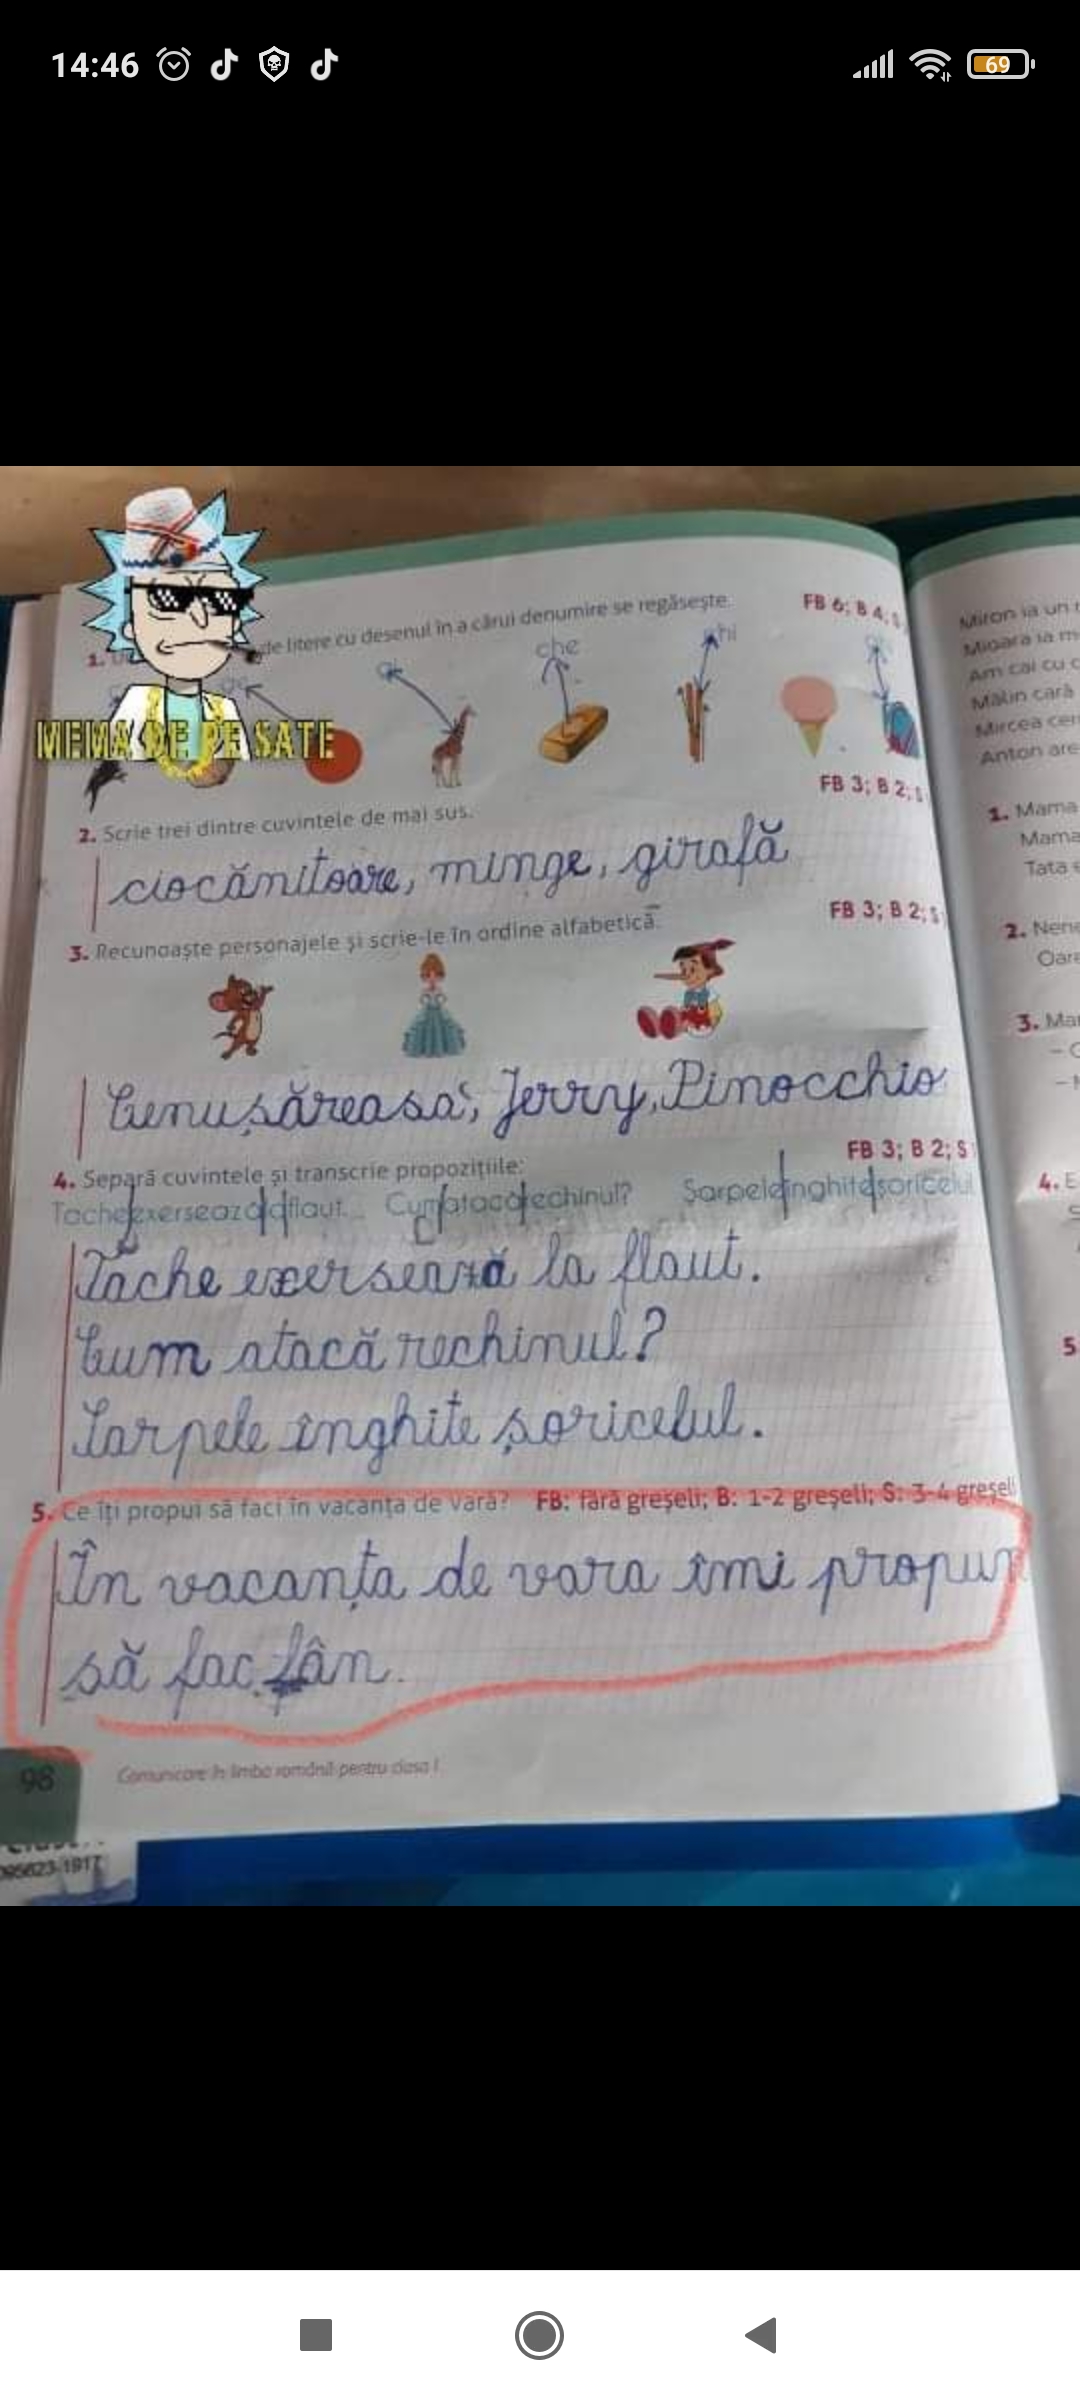 14:46
69
FB 6; B 4; S
1. de litere cu desenul în a cărui denumire se regăsește.
ge gi che ghi
MEMA DE PE SATE
FB 3; B 2; S
2. Scrie trei dintre cuvintele de mai sus.
ciocănitoare, minge, girafă
FB 3; B 2; S
3. Recunoaște personajele și scrie-le în ordine alfabetică.
Cenușăreasa, Jerry, Pinocchio
FB 3; B 2; S
4. Separă cuvintele și transcrie propozițiile:
Tacheexerseazălaflaut. Cumatacărechinul? Șarpeleînghiteșoricelul
Tache exersează la flaut.
Cum atacă rechinul?
Sarpele înghite șoricelul.
5. Ce îți propui să faci în vacanța de vară? FB: fără greșeli; B: 1-2 greșeli; S: 3-4 greșeli
În vacanța de vara îmi propun
să fac fân.
98
Comunicare în limba română pentru clasa I
095623-1917
Miron ia un
Mioara ia
Am cai cu
Mălin cară
Mircea
Anton are
1. Mama
Mama
Tata
2.
3.
4.
5